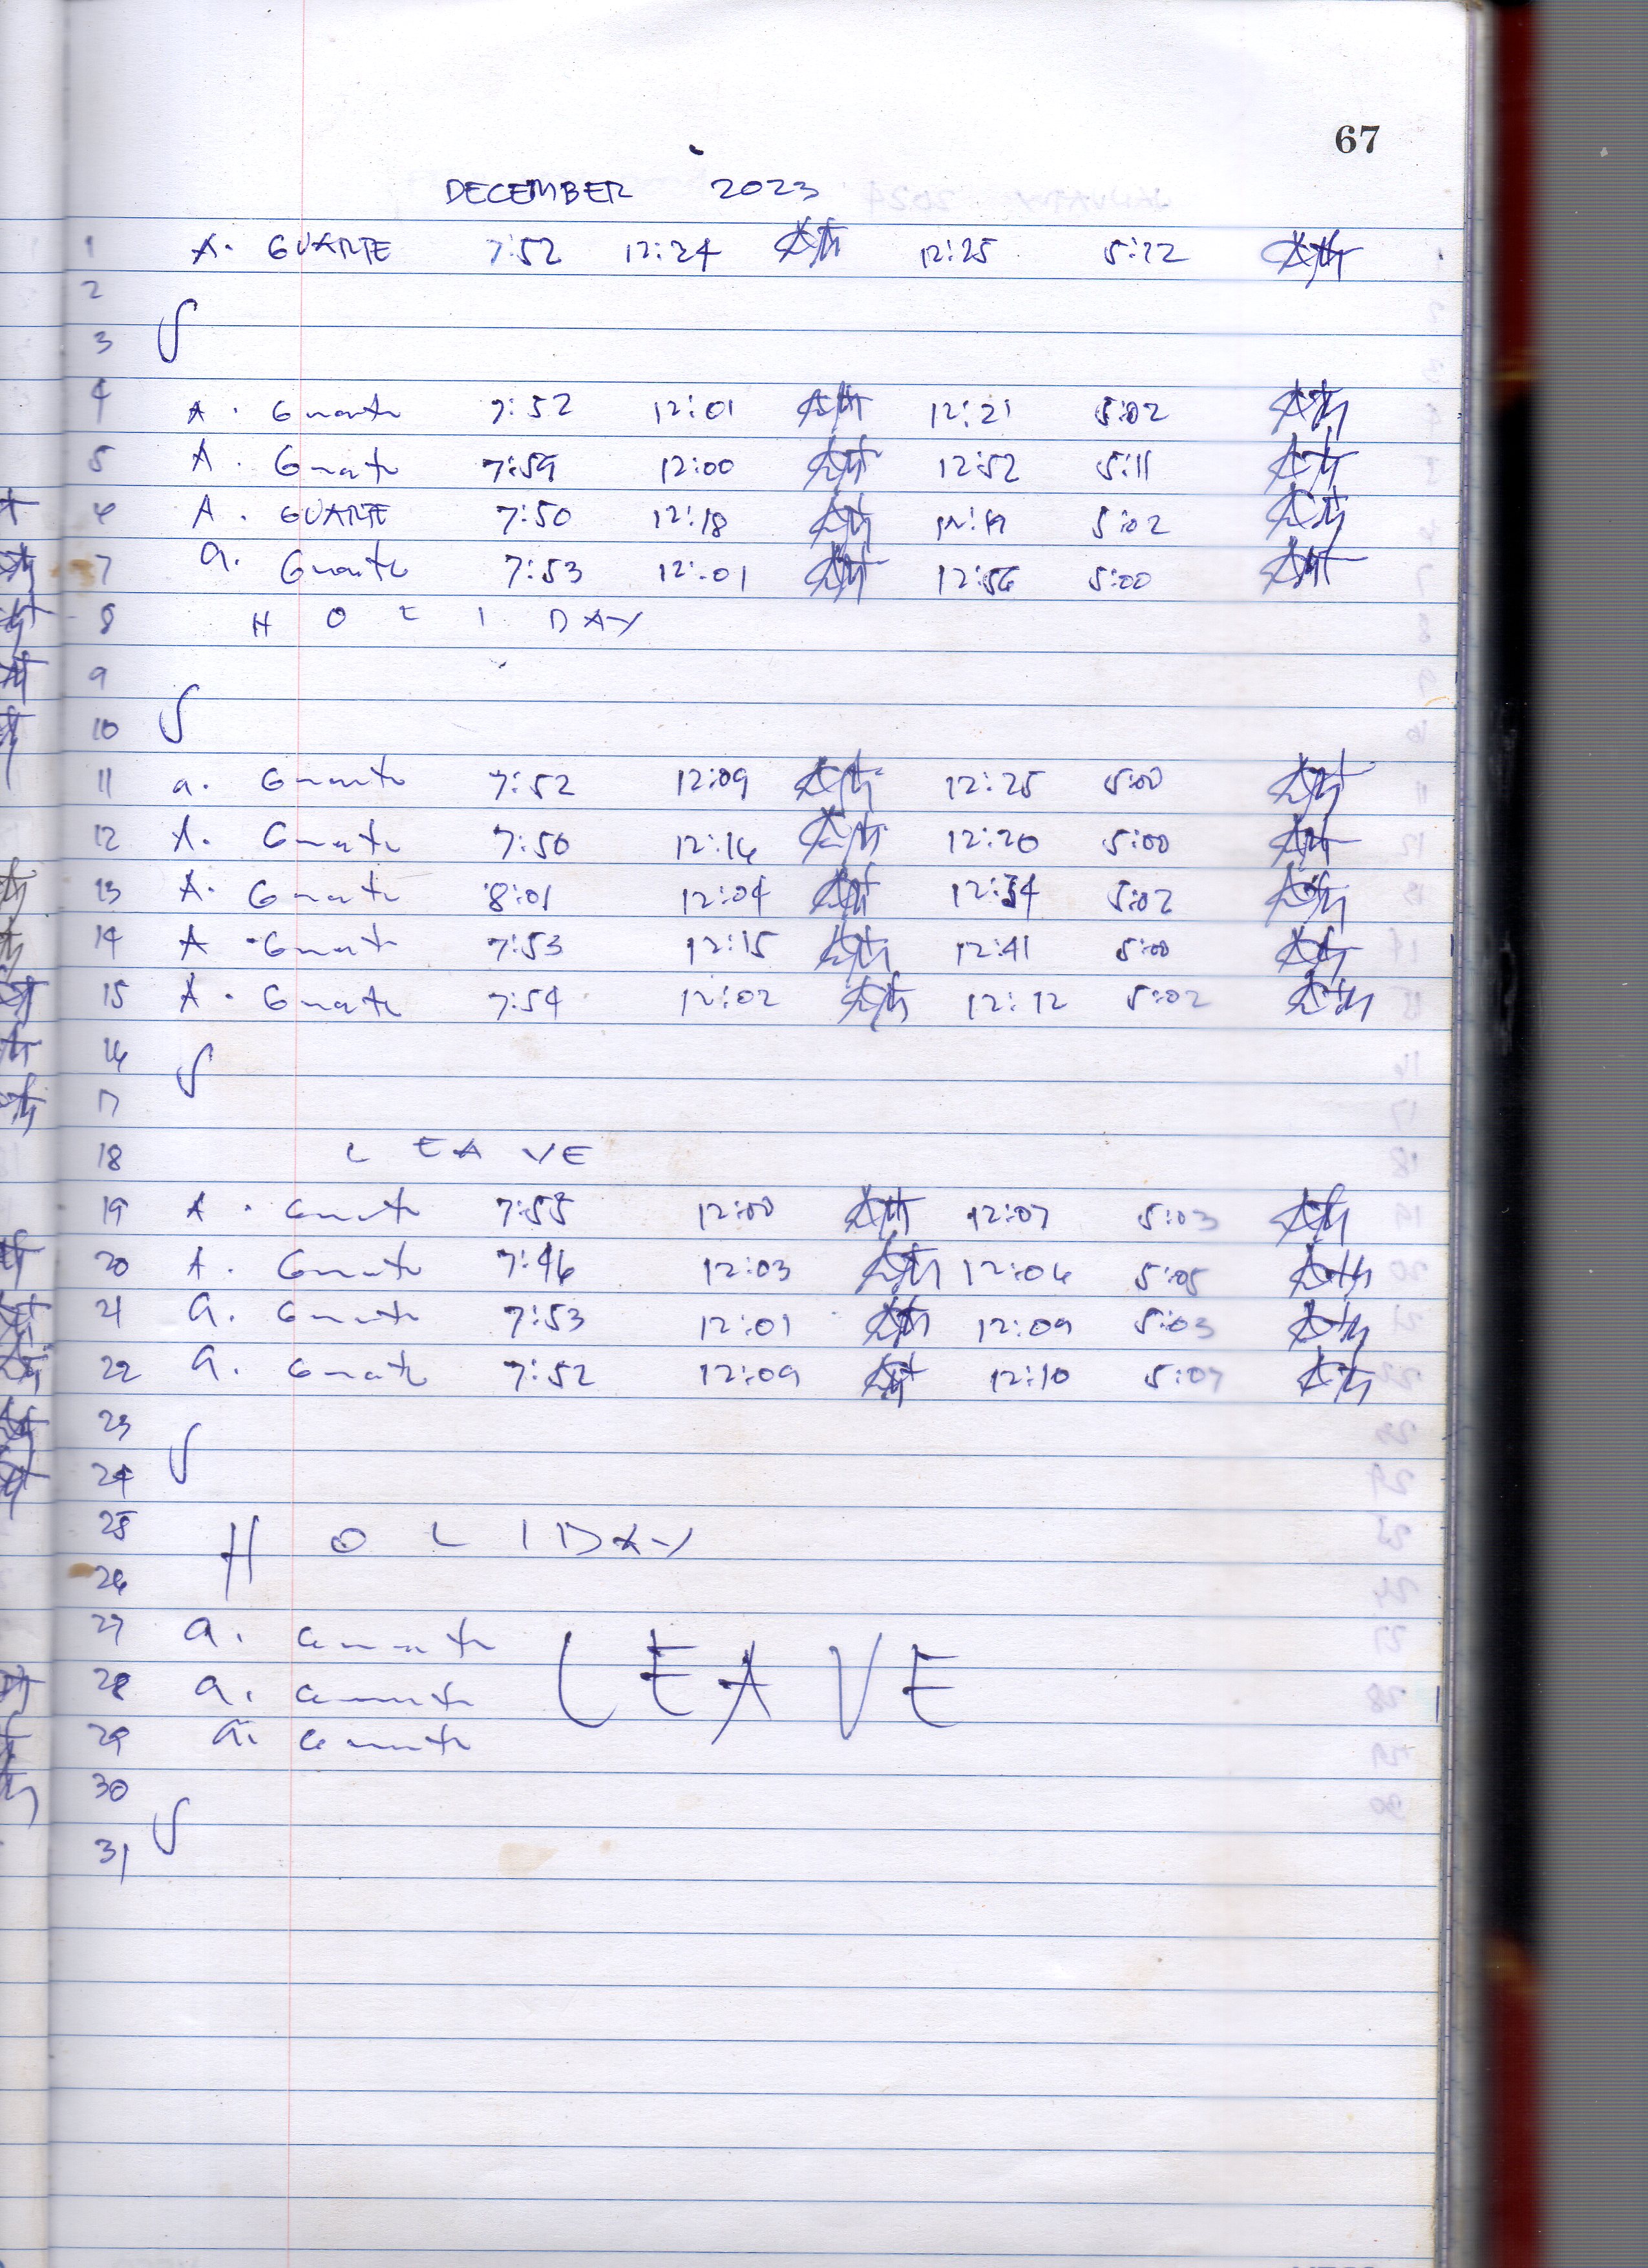 67
DECEMBER 2023
1 A. GUARTE 7:52 12:24 12:25 5:22
2
3
4 A. Guarte 7:52 12:01 12:21 5:02
5 A. Guarte 7:59 12:00 12:52 5:11
6 A. GUARTE 7:50 12:18 12:19 5:02
7 a. Guarte 7:53 12:01 12:56 5:00
8 HOLIDAY
9
10
11 a. Guarte 7:52 12:09 12:25 5:00
12 A. Guarte 7:50 12:16 12:20 5:00
13 A. Guarte 8:01 12:04 5:02
14 A. Guarte 7:53 12:15 12:41 5:00
15 A. Guarte 7:54 12:02 12:12 5:02
16
17
18 LEAVE
19 A. Guarte 7:55 12:00 12:07 5:03
20 A. Guarte 7:46 12:03 12:06 5:05
21 a. Guarte 7:53 12:01 12:09 5:03
22 a. Guarte 7:52 12:09 12:10 5:07
23
24
25 HOLIDAY
26
27 a. Guarte
28 a. Guarte LEAVE
29 a. Guarte
30
31